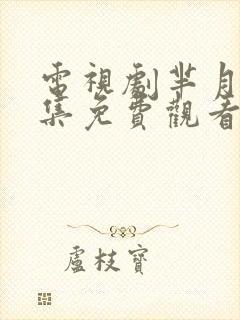 電視劇芈月
集免費觀看
盧枝寶